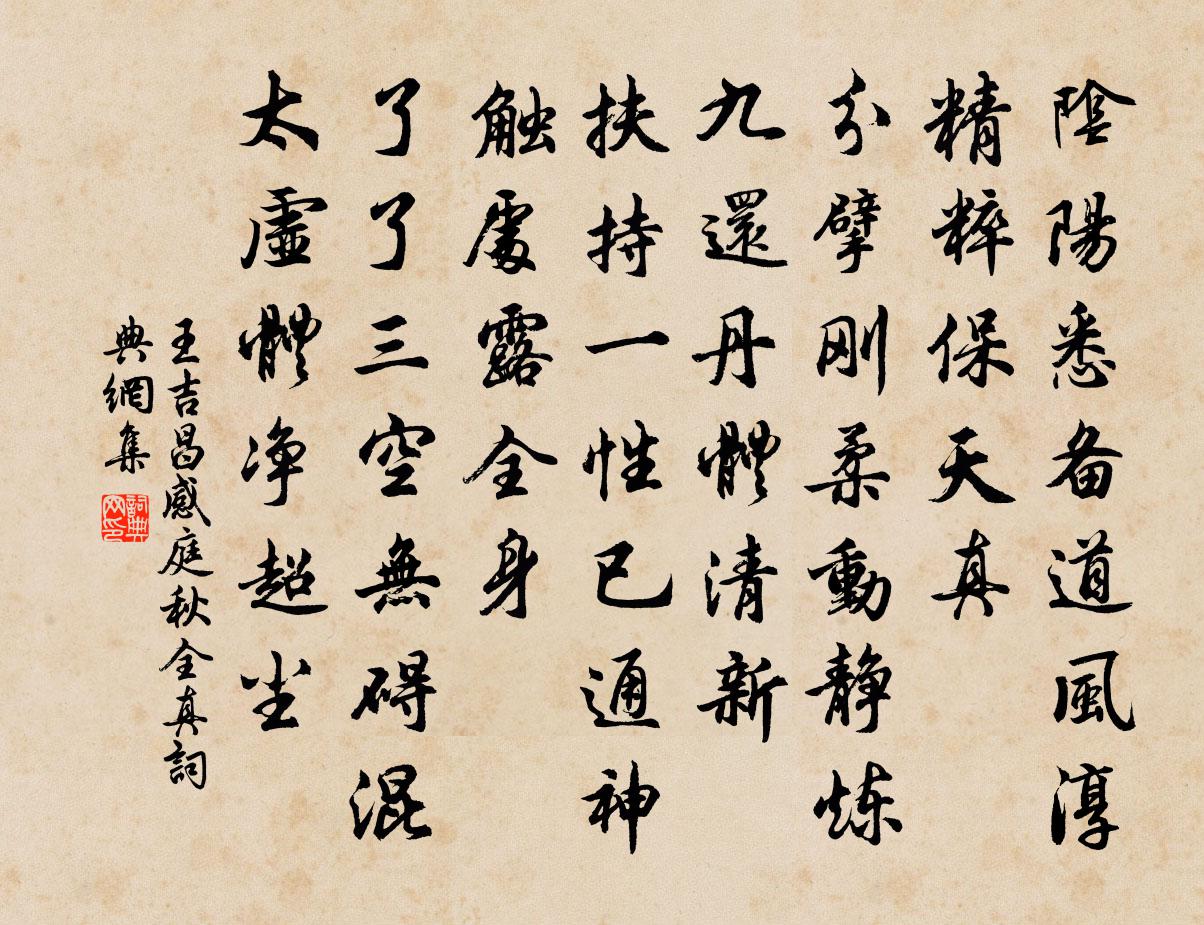 陰陽悉备道風淳
精粹保天真
分擘刚柔動静炼
九還丹體清新
扶持一性已通神
触處露全身
了了三空無碍混
太虛體净超尘
王吉昌感庭秋全真詞
典網集
詞典网印